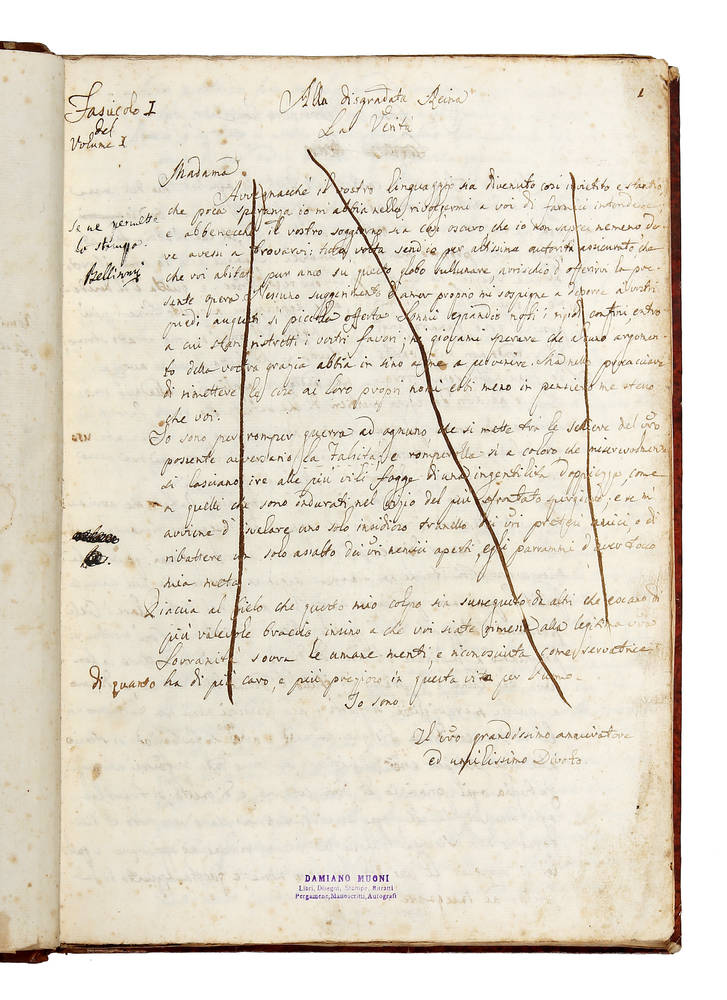 1
Fasicolo I
del
Volume I
Alla disgradata Reina
La Verità
Madama
Avvegnacché il vostro linguaggio sia divenuto così invietito e stantio
che poca speranza io m'abbia nello rivolgermi a voi di farmici intendere
e abbenecché il vostro soggiorno sia così oscuro che io non saprei nemeno do-
ve avessi a trovarvi; tutta volta sendo io per altissima autorità assicurato che
che voi abitate pur anco su questo globo sullunare arrischio d'offerirvi la pre-
sente opera. Nessuno suggerimento d'amor proprio mi sospigne a deporre a' vostri
piedi augusti sì piccola offerta
a cui stan ristretti i vostri favori; né giovami sperare che alcuno argomen-
to della vostra grazia abbia in sino a me a pervenire. Ma nello procacciare
di rimettere le cose ai loro propri nomi ebbi meno in pensiero me stesso
che voi.
Se ne permette
la stampa.
Bellisomi
Io sono per romper guerra ad ognuno che si mette tra le schiere del vro
possente avversario la Falsità, e romperolla sì a coloro che
si lasciano ire alle più vili fogge di una ingentilita doppiezza, come
a quelli che sono indurati nel vizio del più sfrontato spergiuro; e se m'
avviene di svelare uno solo insidioso tranello dei vri pretesi amici, o di
ribattere un solo assalto dei vri nemici aperti, egli parrammi d'aver tocco
mia meta.
Piaccia al Cielo che questo mio colpo sia susseguito di altri che escano di
più valevole braccio, insino a che voi siate rimessa alla legittima vra
Sovranità sovra le umane menti, e riconosciuta conservatrice
di quanto ha di più caro, e più prezioso in questa vita per l'uomo.
Io sono
Il vro grandissimo ammiratore
ed umilissimo Divoto.
DAMIANO MUONI
Libri, Disegni, Stampe, Ritratti
Pergamene, Manoscritti, Autografi